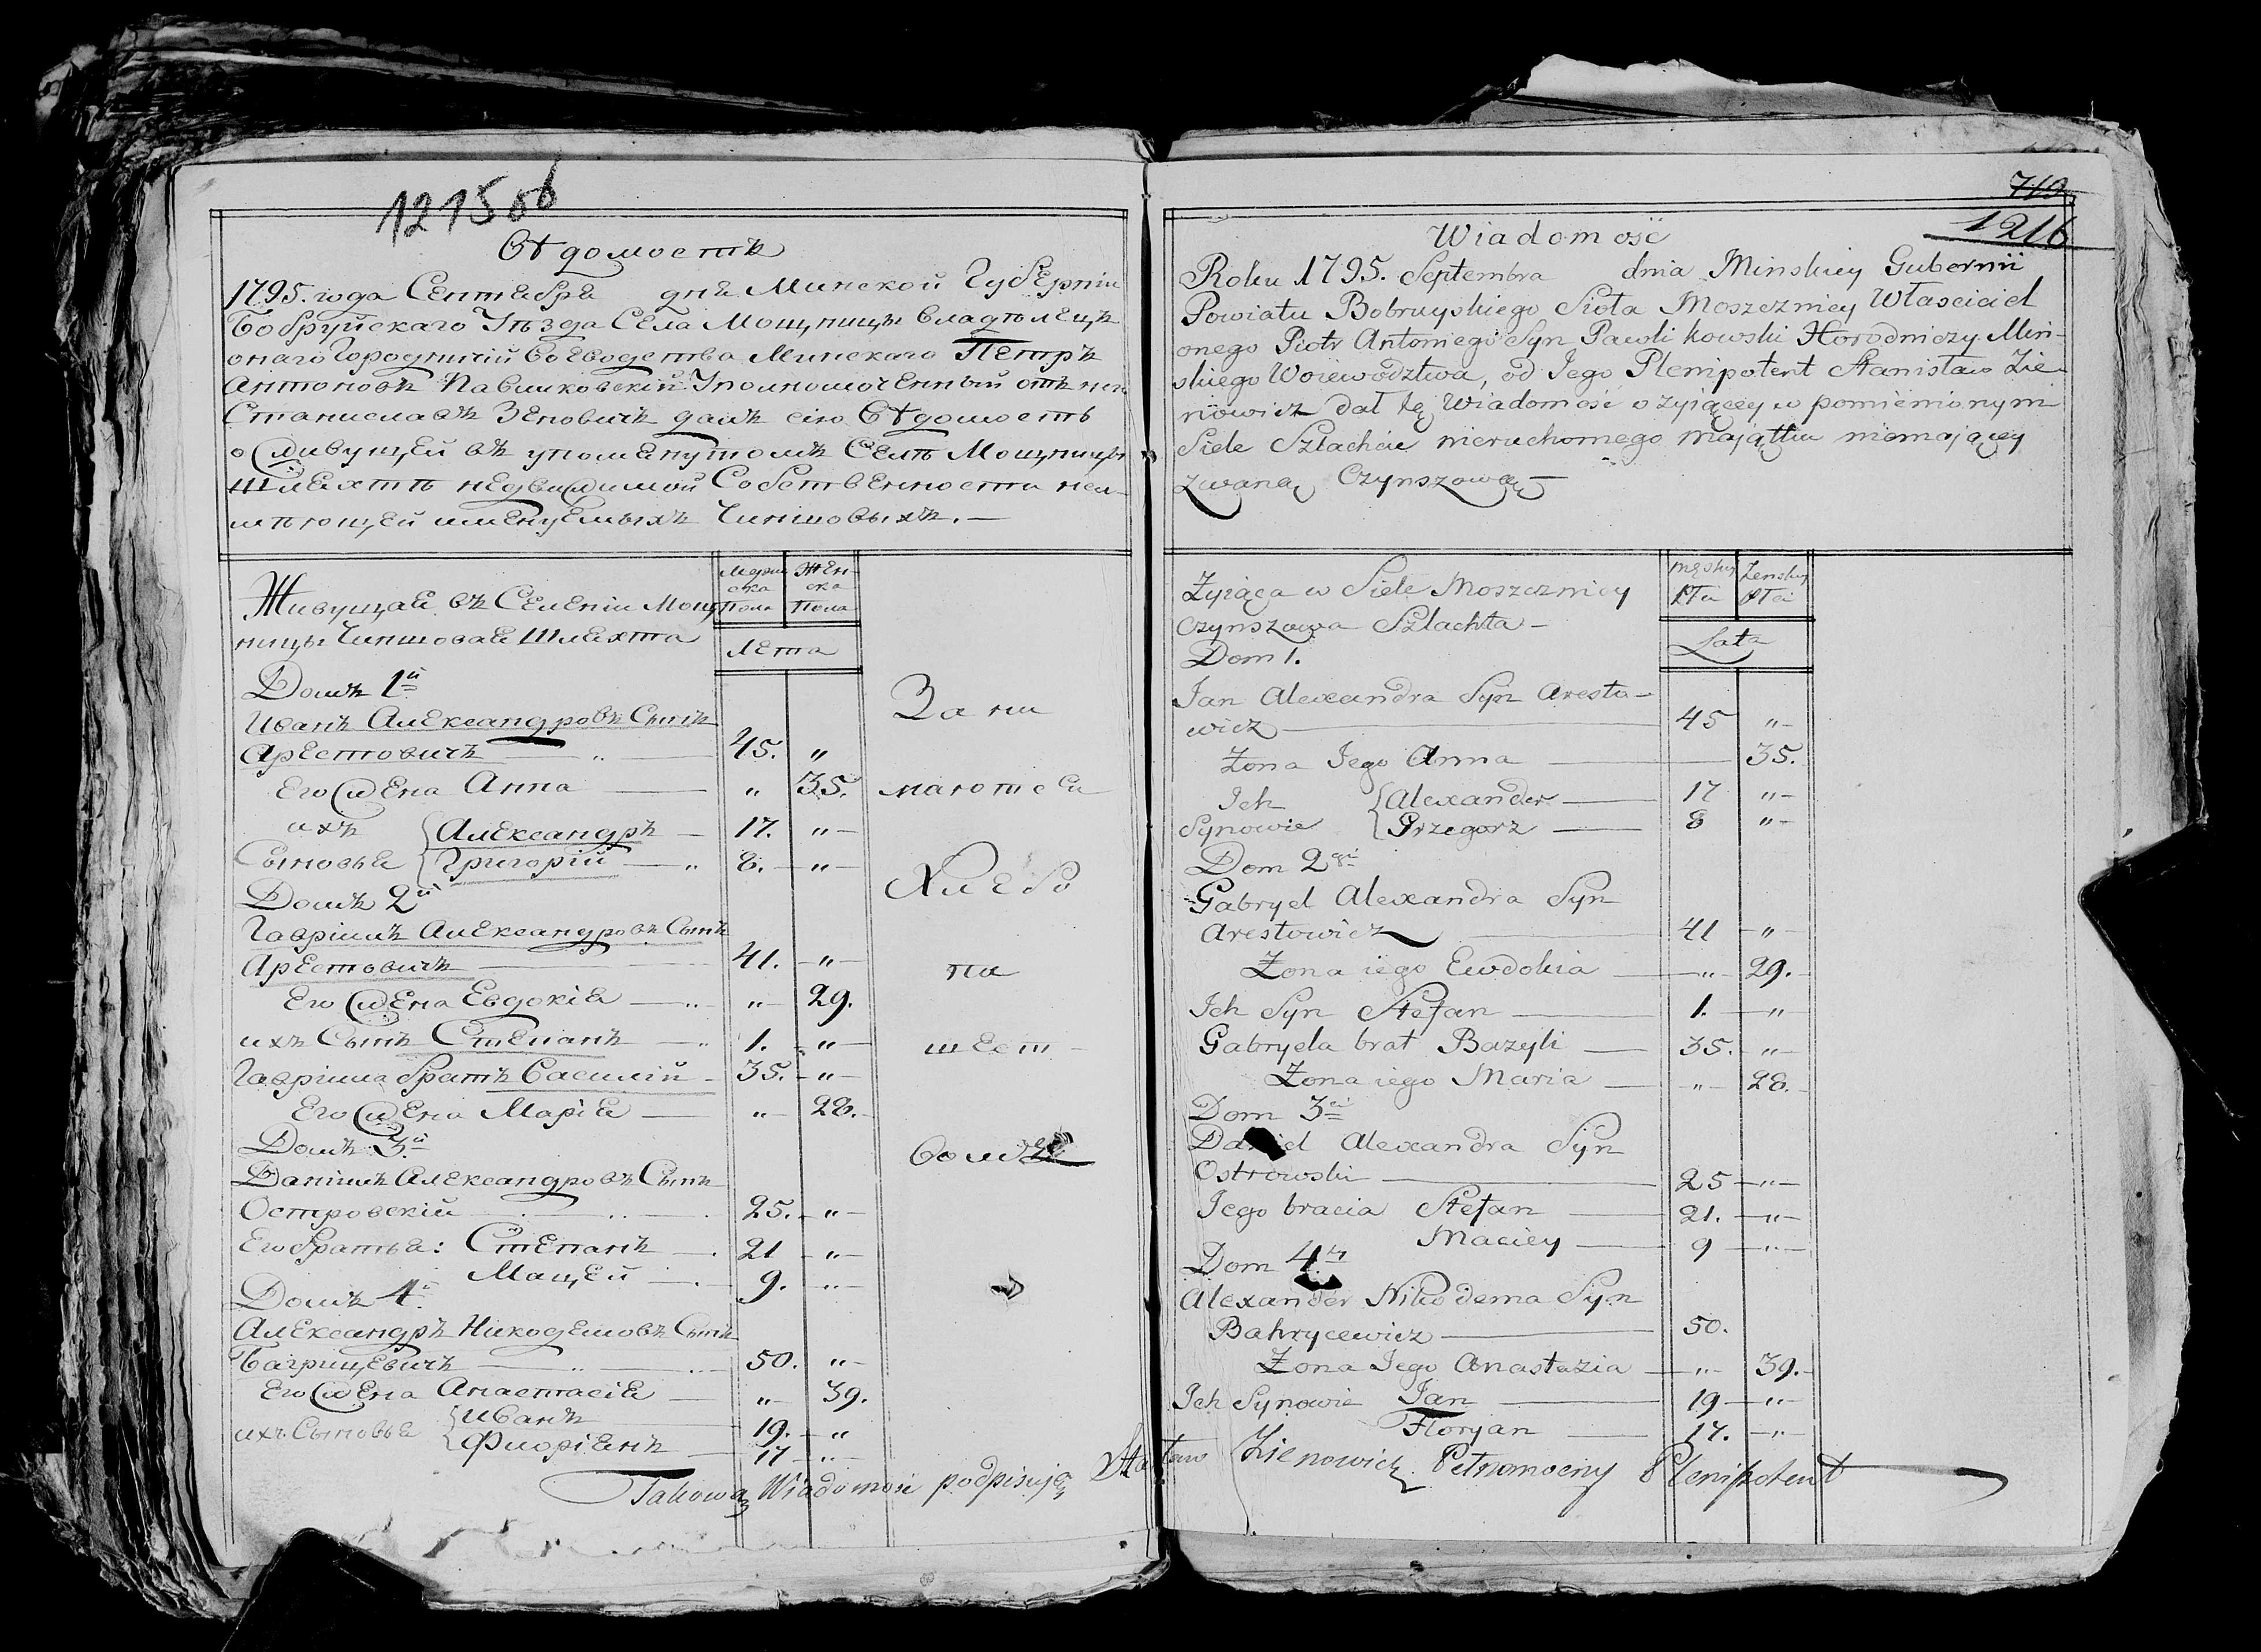 1215 об
Вѣдомость
1795. года Сентября дня Минской Губерніи
Бобруйскаго Уѣзда Села Мощницы владѣлецъ
онаго Городничій Воеводства Минскаго Петръ
Антоновъ Павликовскій Уполномоченный отъ него
Станиславъ Зеновичъ далъ сію Вѣдомость
о живущей въ упомянутомъ Селѣ Мощницы
Шляхтѣ недвижимой Собственности неи-
мѣющей именуемыхъ Чиншовыхъ.—
Живущая въ Селеніи Мощ
ницы Чиншовая Шляхта
Мужес
ска
Пола
Жен-
ска
Пола
Лета
Домъ 1й
Иванъ Александровъ Сынъ
Арестовичъ — 45. "
Его Жена Анна — " 35.
ихъ { Александръ — 17. "
Сыновья { Григорій — 8. "
Домъ 2й
Гавріилъ Александровъ Сынъ
Арестовичъ — 41. "
Его Жена Евдокія — " 29.
ихъ Сынъ Степанъ — 1. "
Гавріила братъ Василій — 35. "
Его Жена Марія — " 28.
Домъ 3й
Даніилъ Александровъ Сынъ
Островскій — 25. "
Его братья: Степанъ — 21 "
Мацѣй — 9. "
Домъ 4й
Александръ Никодемовъ Сынъ
Багрицевичъ — 50. "
Его Жена Анастасія — " 39.
ихъ Сыновья { Иванъ 19. "
{ Флоріянъ — 17 "
Зани
маются
Хлебо
па
шест
вомъ
719
1216
Wiadomość
Roku 1795. Septembra dnia Minskiey Gubernii
Powiatu Bobruyskiego Sioła Moszcznicy Własciciel
onego Piotr Antoniego Syn Pawlikowski Horodniczy Miń-
skiego Woiewodztwa, od Jego Plenipotent Stanisław Zie-
nowicz dał tę Wiadomość o żyiącey w pomienionym
Siele Szlachcie nieruchomego maiątku niemającey
zwaną Czynszową—
Żyiąca w Siele Moszcznicy
Czynszowa Szlachta—
męskiey
Płci
Żenskiey
Płci
Lata
Dom 1.
Jan Alexandra Syn Aresto-
wicz — 45 "
Żona Jego Anna — 35.
Ich { Alexander — 17 "
Synowie { Grzegorz — 8 "
Dom 2gi
Gabryel Alexandra Syn
Arestowicz — 41 "
Żona iego Ewdokia — " 29.
Ich Syn Stefan — 1. "
Gabryela brat Bazyli — 35. "
Żona iego Maria — " 28.
Dom 3ci
Daniel Alexandra Syn
Ostrowski — 25 "
Jego bracia Stefan — 21. "
Maciey — 9 "
Dom 4ty
Alexander Nikodema Syn
Bahrycewicz — 50.
Żona Jego Anastazia — " 39.
Ich Synowie Jan — 19 "
Floryan — 17. "
Takową Wiadomość podpisuję Stanisław Zienowicz Pełnomocny Plenipotent